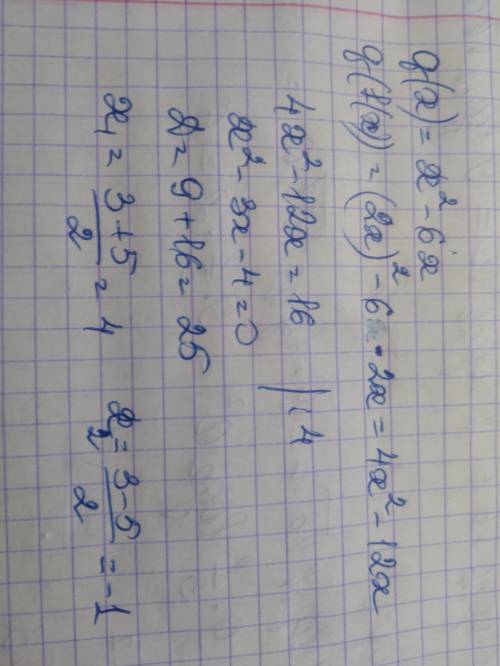 g(x) = x² - 6x
g(f(x)) = (2x)² - 6 · 2x = 4x² - 12x
4x² - 12x = 16 | : 4
x² - 3x - 4 = 0
D = 9 + 16 = 25
x₁ = (3+5)/2 = 4 x₂ = (3-5)/2 = -1